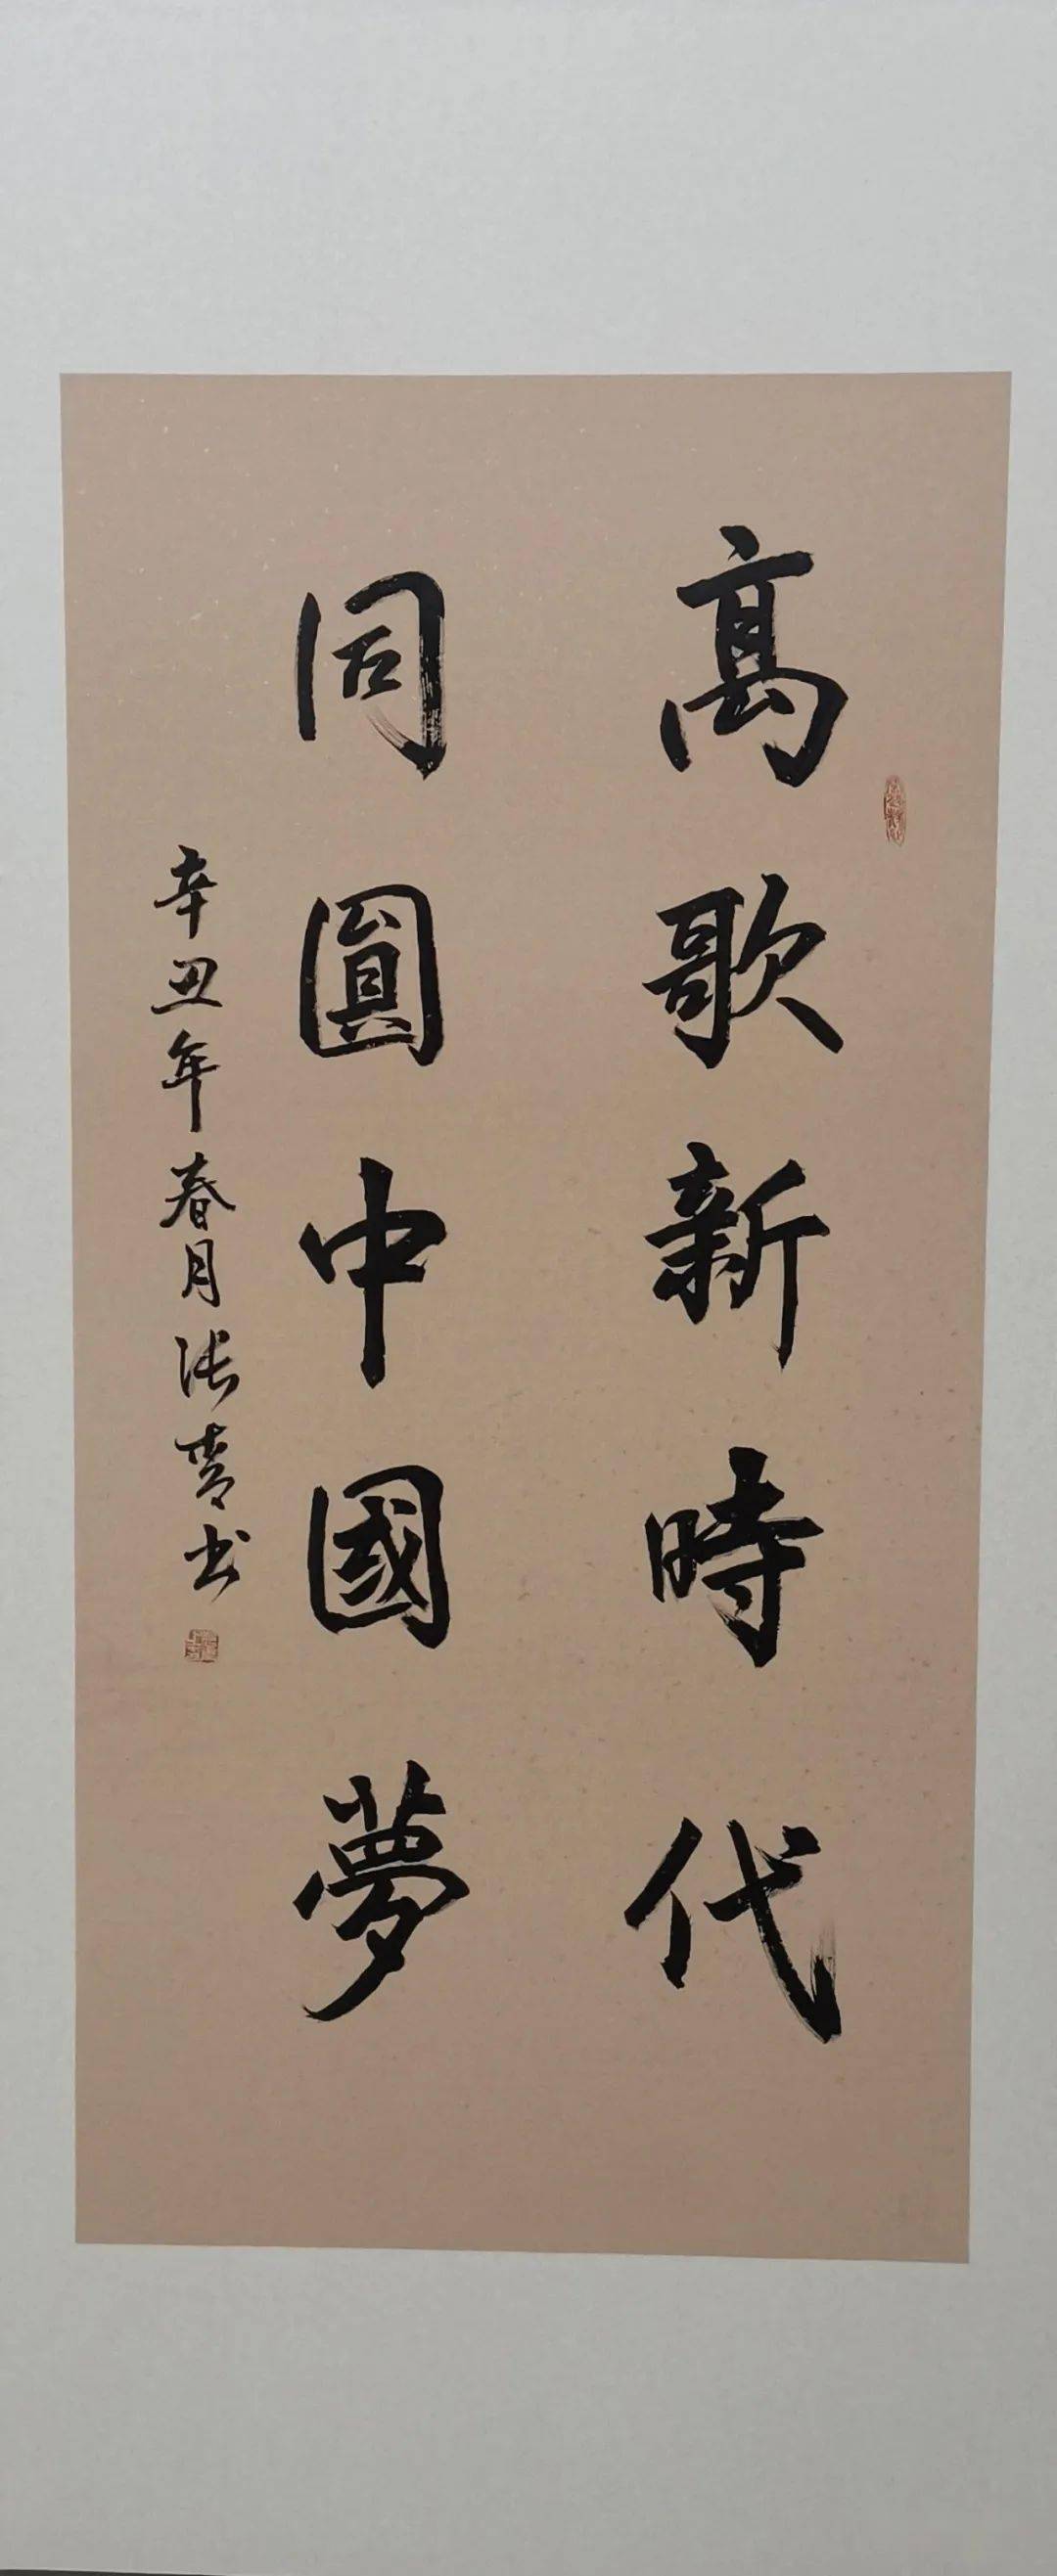 高歌新時代
同圓中國夢
辛丑年春月張青书